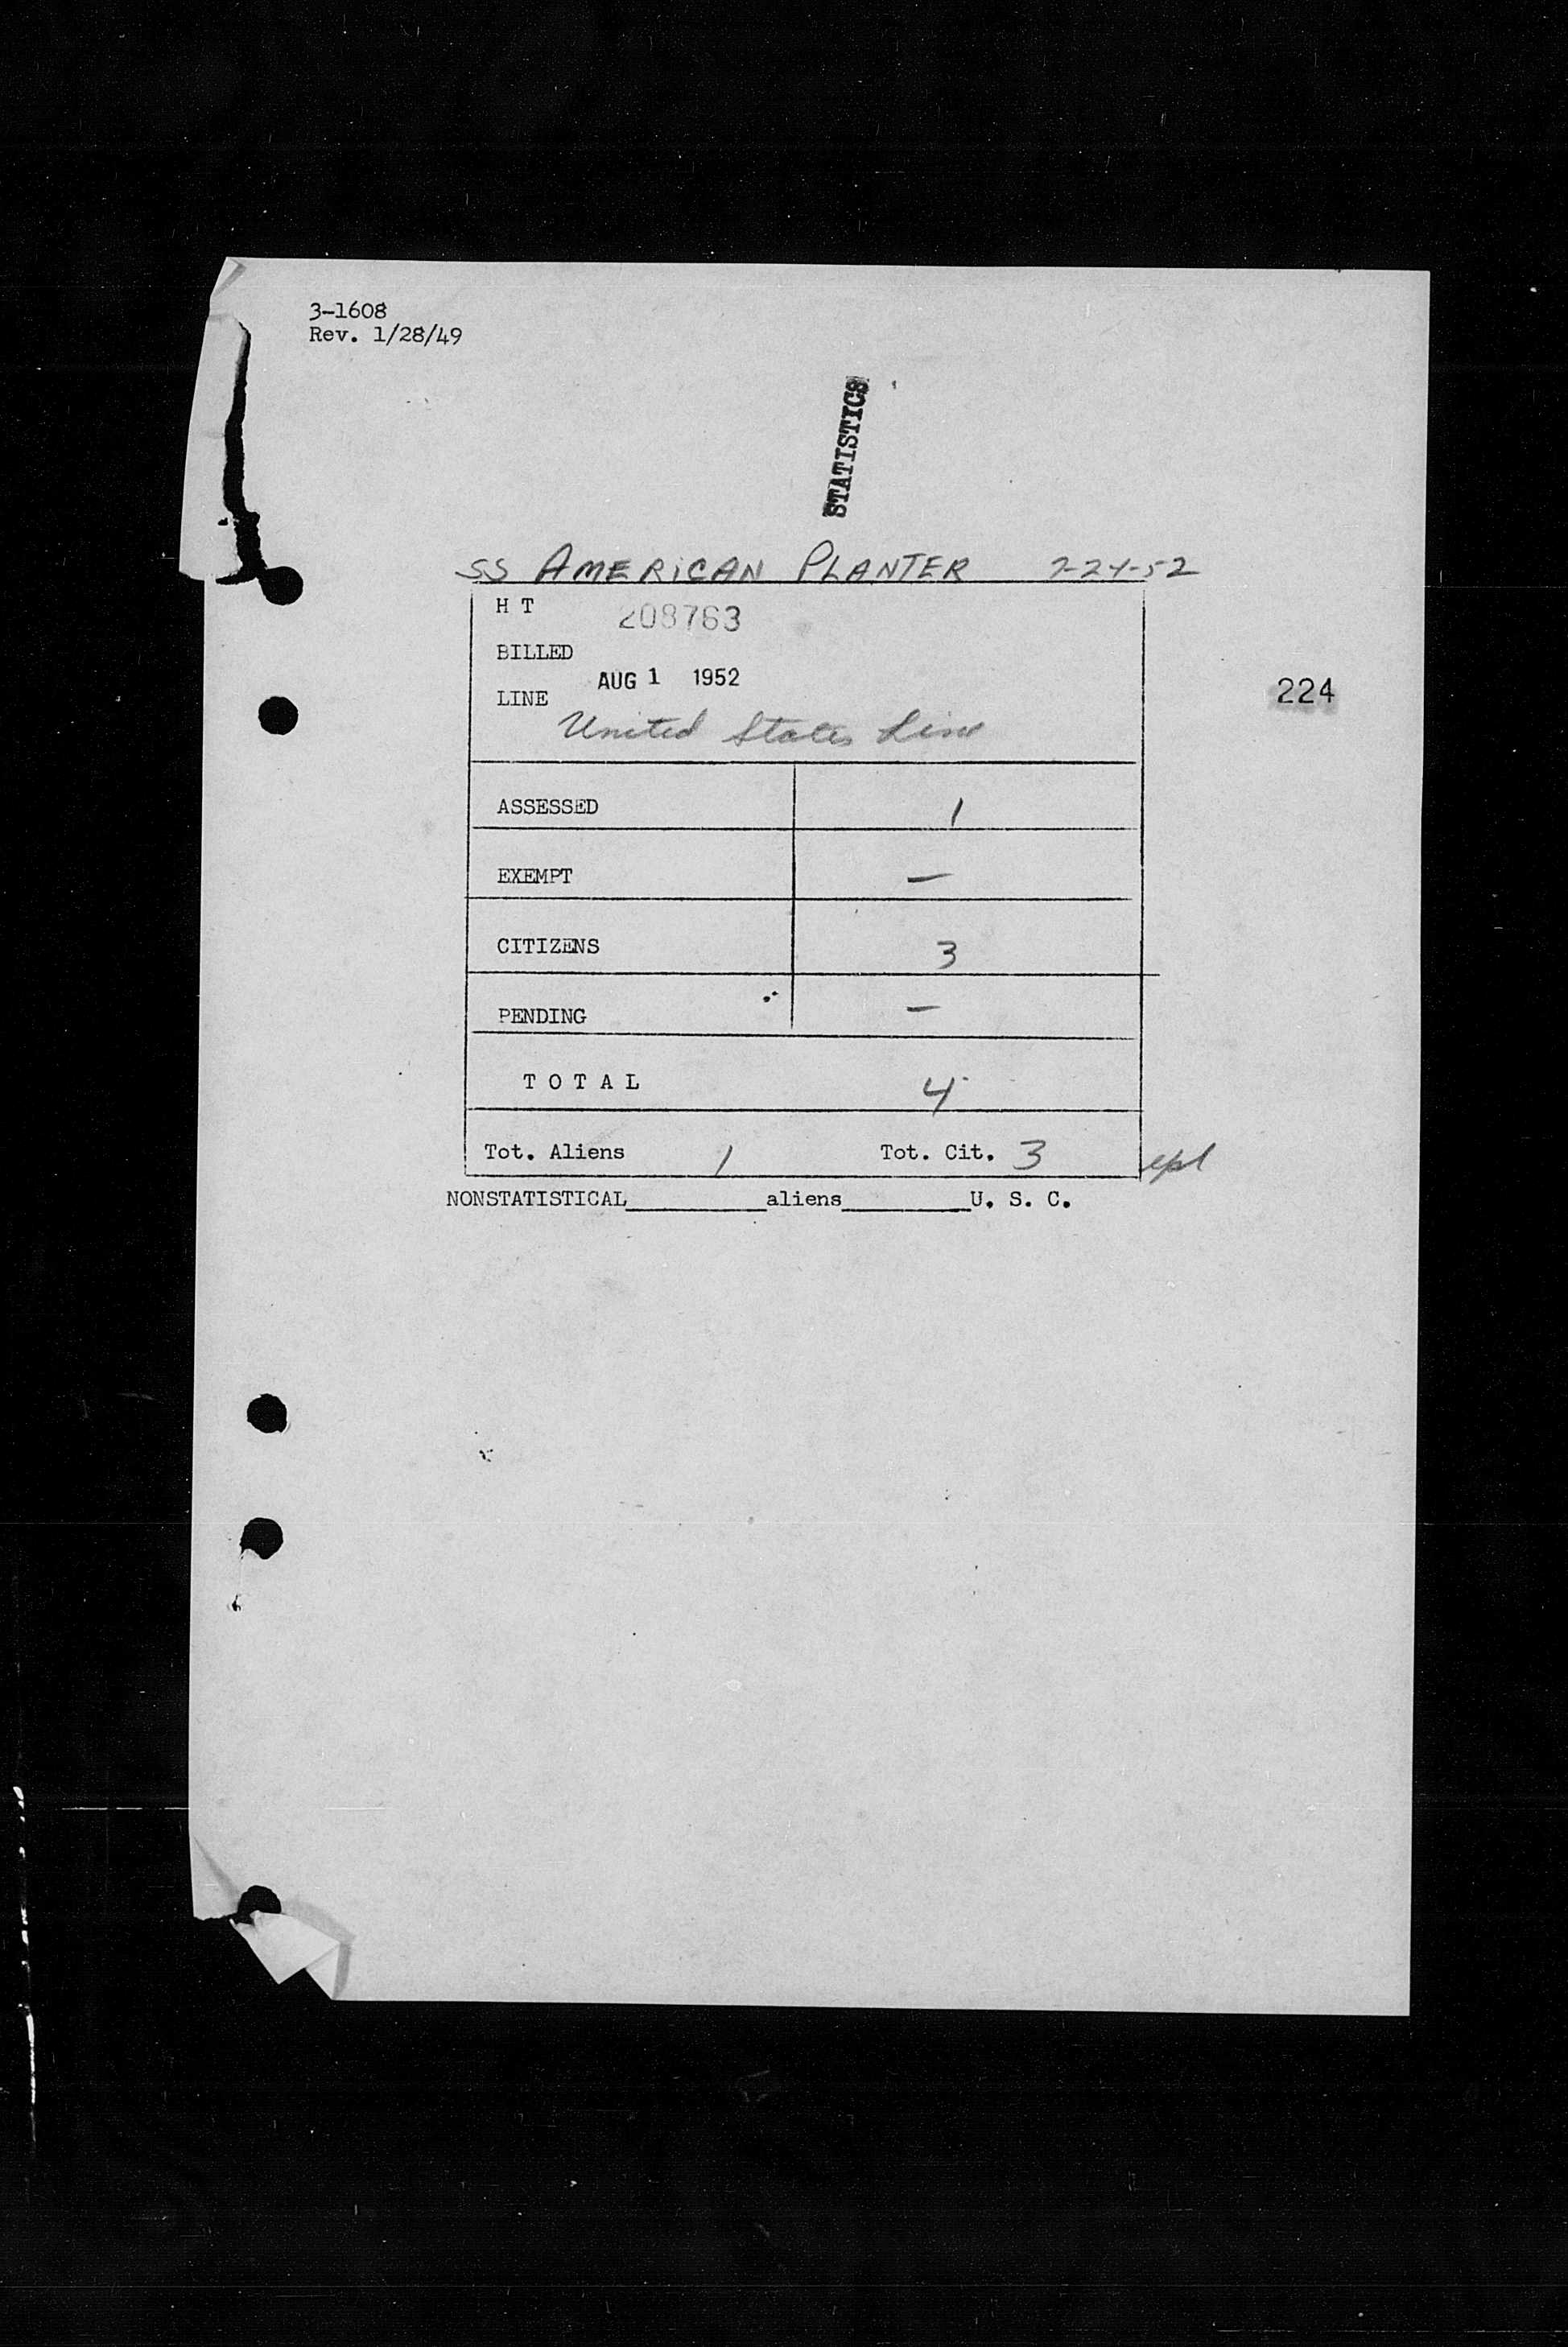 3-1608
Rev. 1/28/49
STATISTICS
SS AMERICAN PLANTER 7-24-52
H T 208763
BILLED
AUG 1 1952
LINE
224
United States Line
ASSESSED 1
EXEMPT —
CITIZENS 3
PENDING —
T O T A L 4
Tot. Aliens 1 Tot. Cit. 3
NONSTATISTICAL__________aliens_________U. S. C.